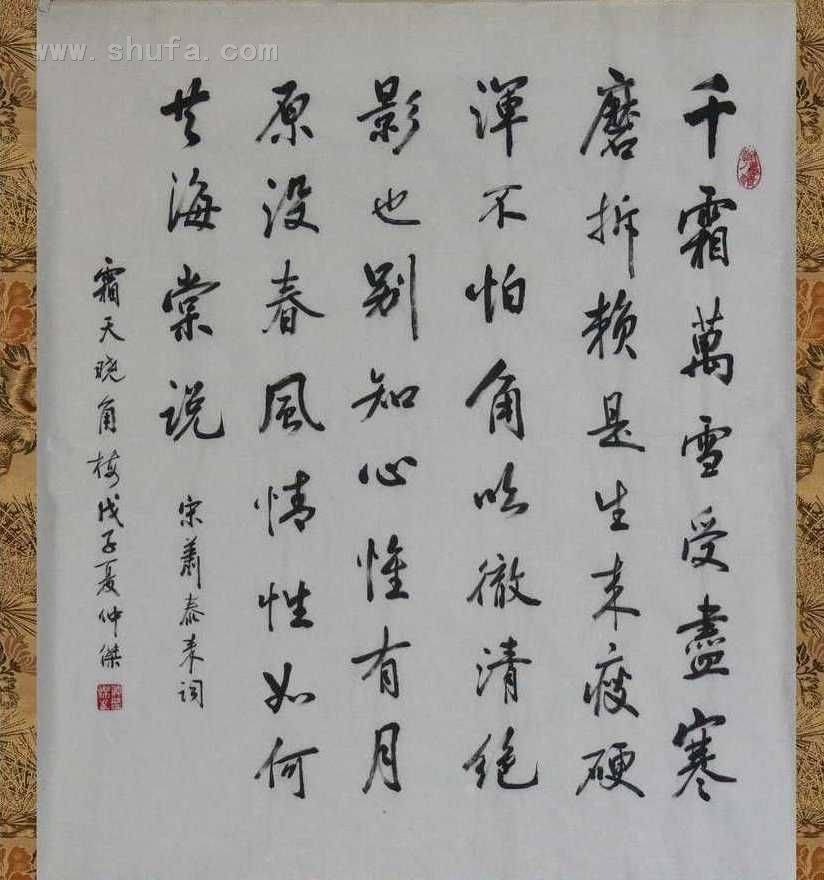 www.shufa.com
千霜萬雪受盡寒
磨拆赖是生来瘦硬
渾不怕角吹徹清絶
影也别知心惟有月
原没春風情性如何
共海棠说
宋萧泰来词
霜天晓角梅戊子夏仲傑